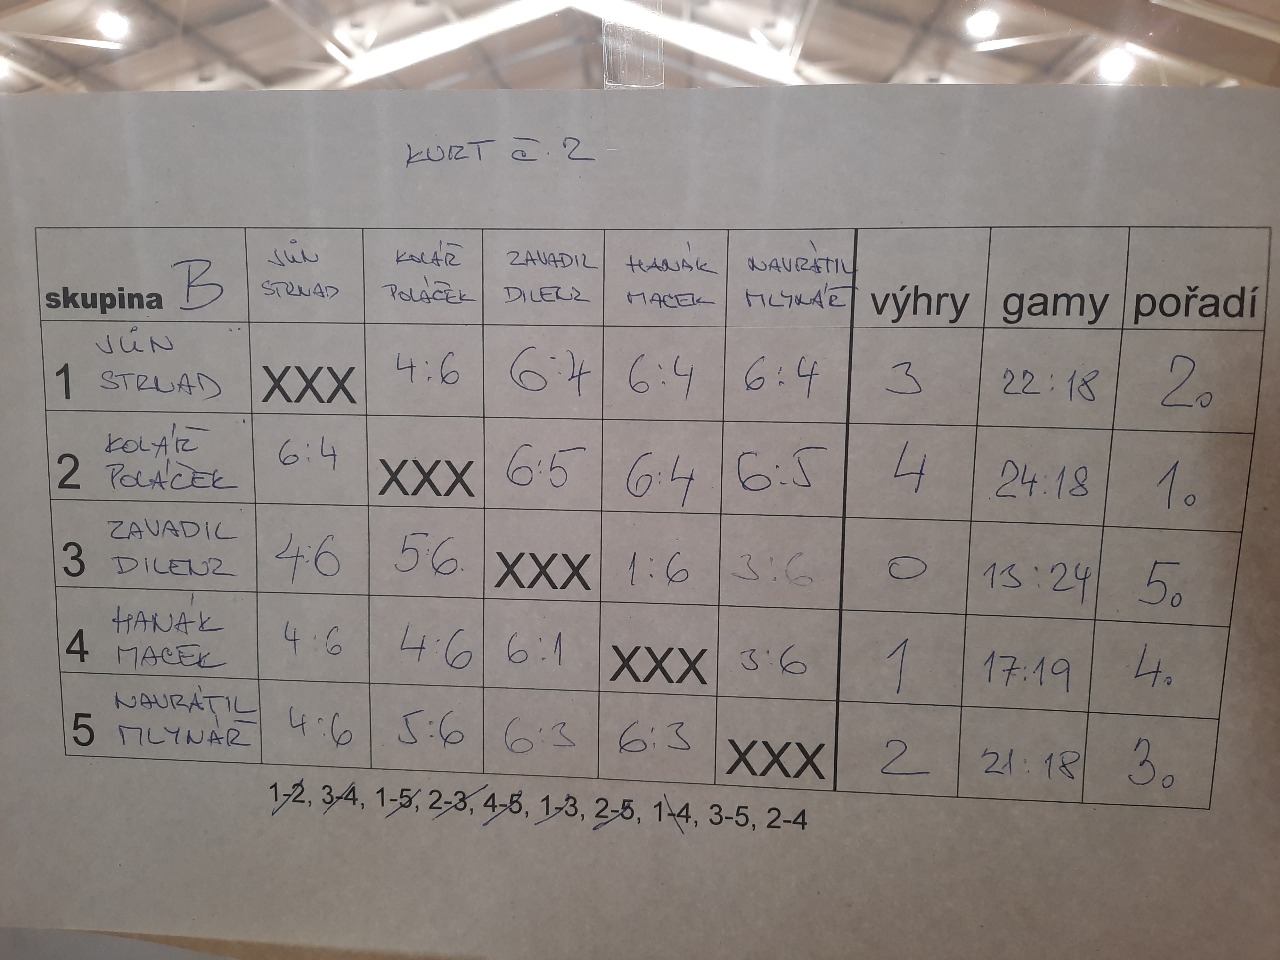 KURT č. 2
skupina B JŮN STRNAD KOLÁŘ POLÁČEK ZAVADIL DILENZ HANÁK MACEK NAVRÁTIL MLYNÁŘ výhry gamy pořadí
1 JŮN STRNAD XXX 4:6 6:4 6:4 6:4 3 22:18 2.
2 KOLÁŘ POLÁČEK 6:4 XXX 6:5 6:4 6:5 4 24:18 1.
3 ZAVADIL DILENZ 4:6 5:6. XXX 1:6 3:6 0 13:24 5.
4 HANÁK MACEK 4:6 4:6 6:1 XXX 3:6 1 17:19 4.
5 NAVRÁTIL MLYNÁŘ 4:6 5:6 6:3 6:3 XXX 2 21:18 3.
1-2, 3-4, 1-5, 2-3, 4-5, 1-3, 2-5, 1-4, 3-5, 2-4